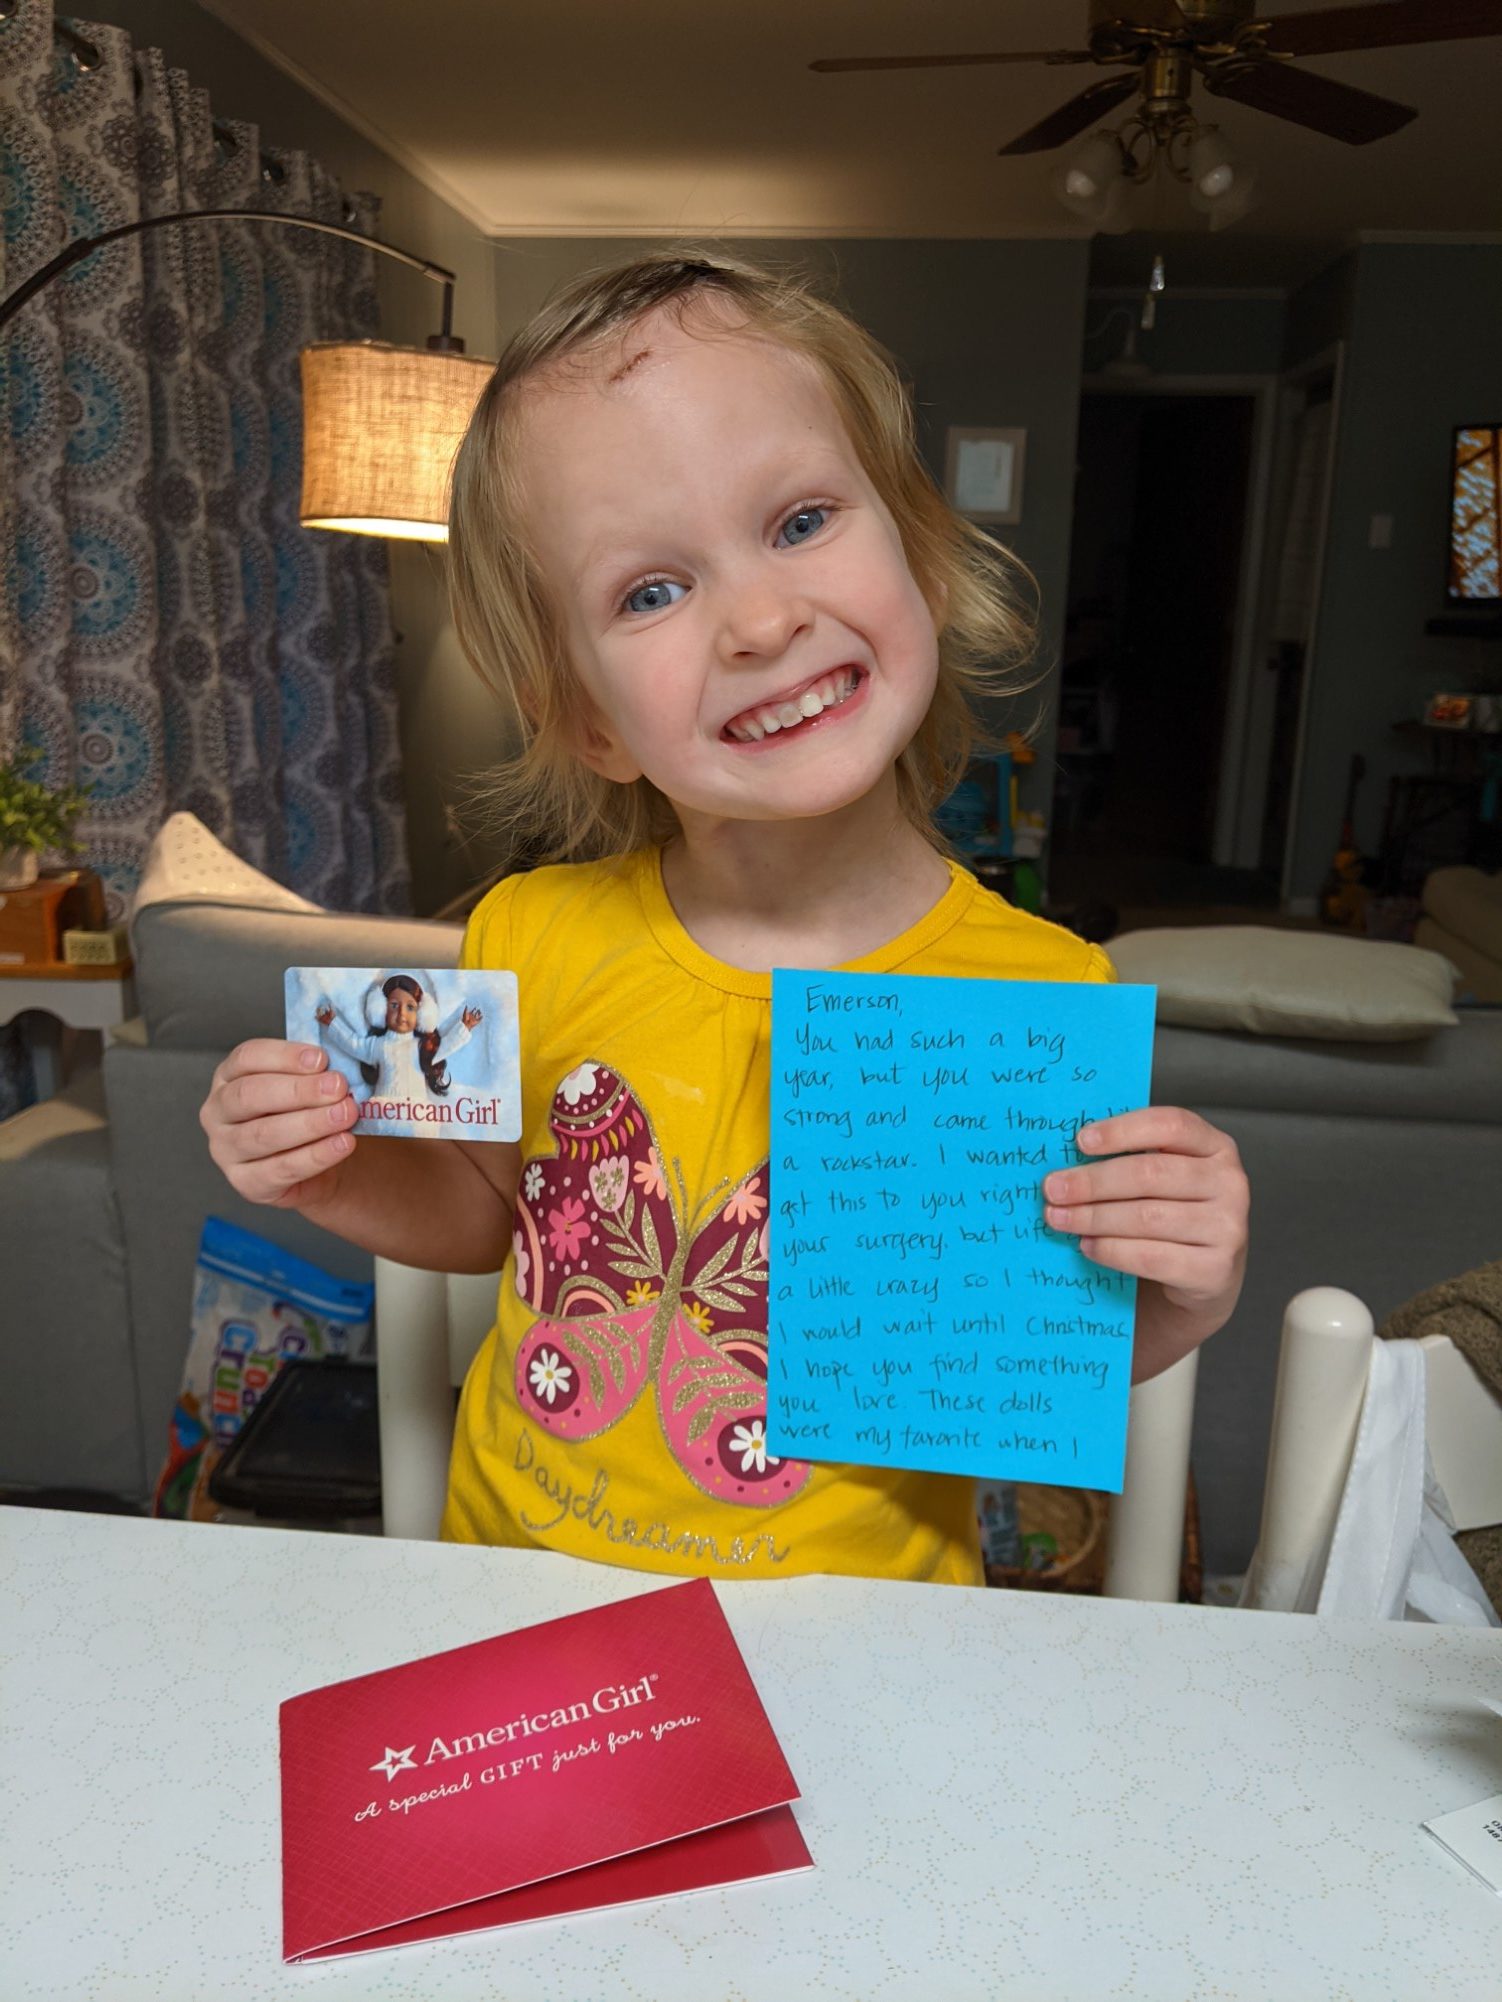 American Girl
Emerson,
You had such a big
year, but you were so
strong and came through
a rockstar. I wanted
get this to you right
your surgery, but life
a little crazy so I thought
I would wait until Christmas
I hope you find something
you love. These dolls
were my favorite when I
Daydreamer
American Girl®
A special GIFT just for you.